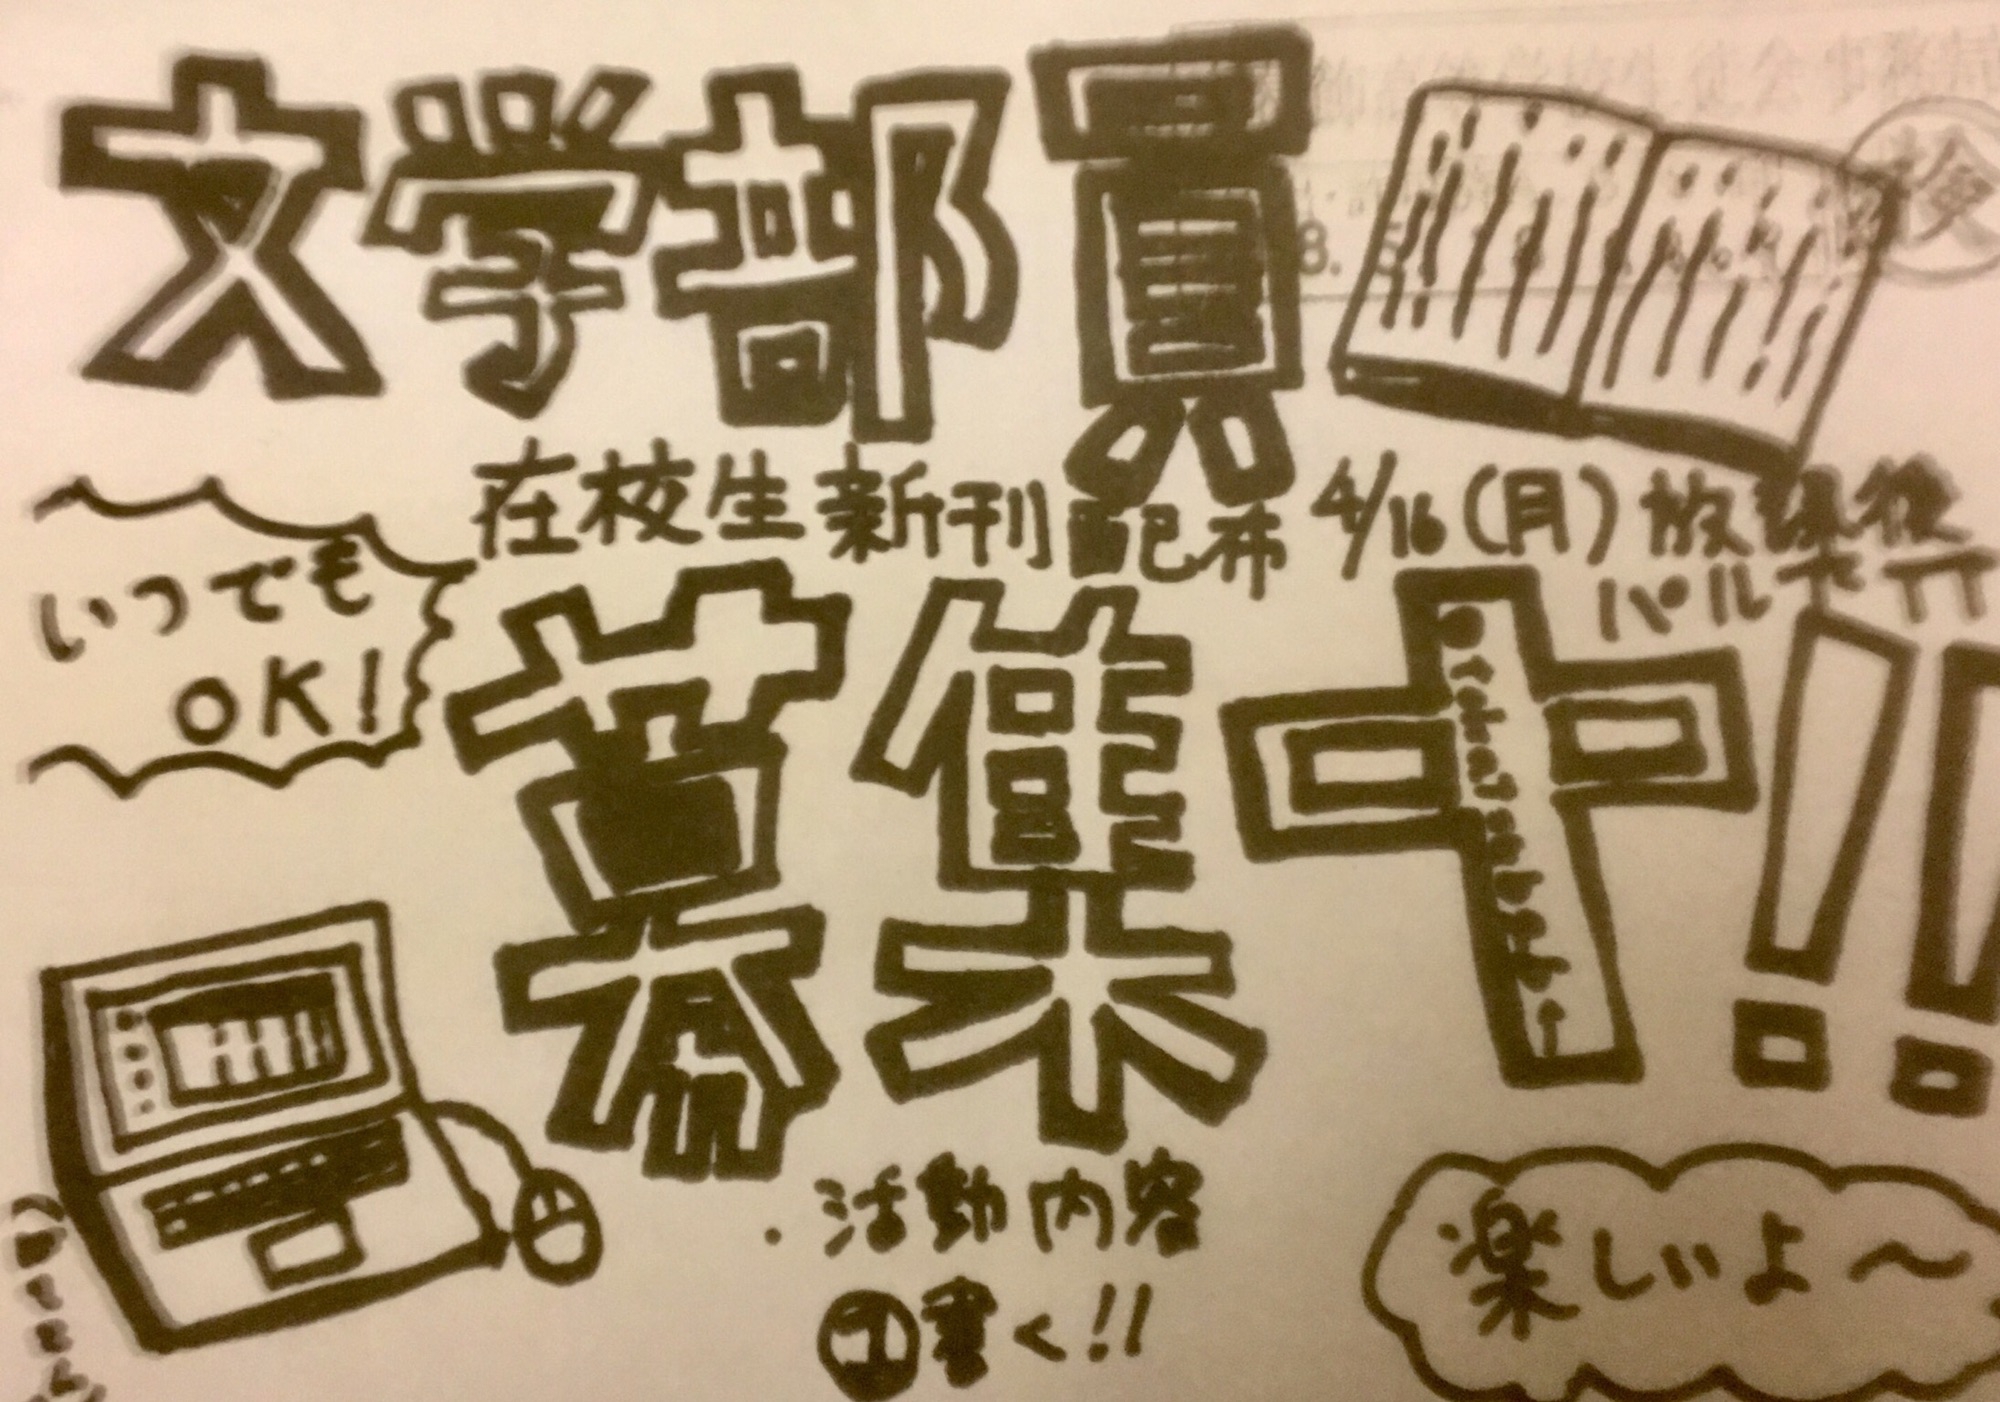 文学部員
在校生新刊配布 4/16(月)放課後
いつでも
OK!
募集中!!
・活動内容
①書く!!
楽しいよ～